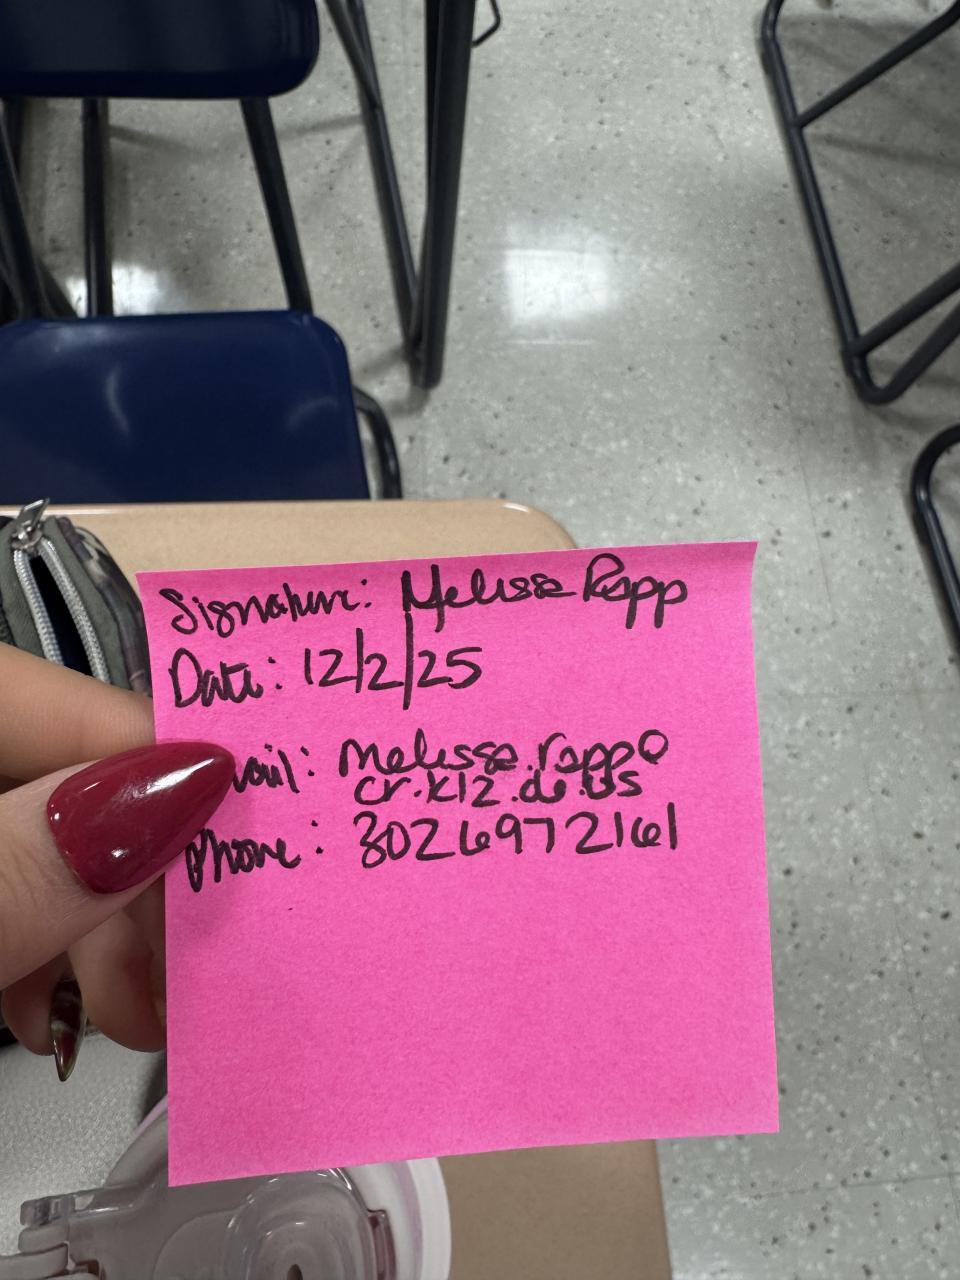 Signature: Melissa Rapp
Date: 12/2/25
mail: melissa.rapp@
cr.k12.de.us
Phone: 3026972161